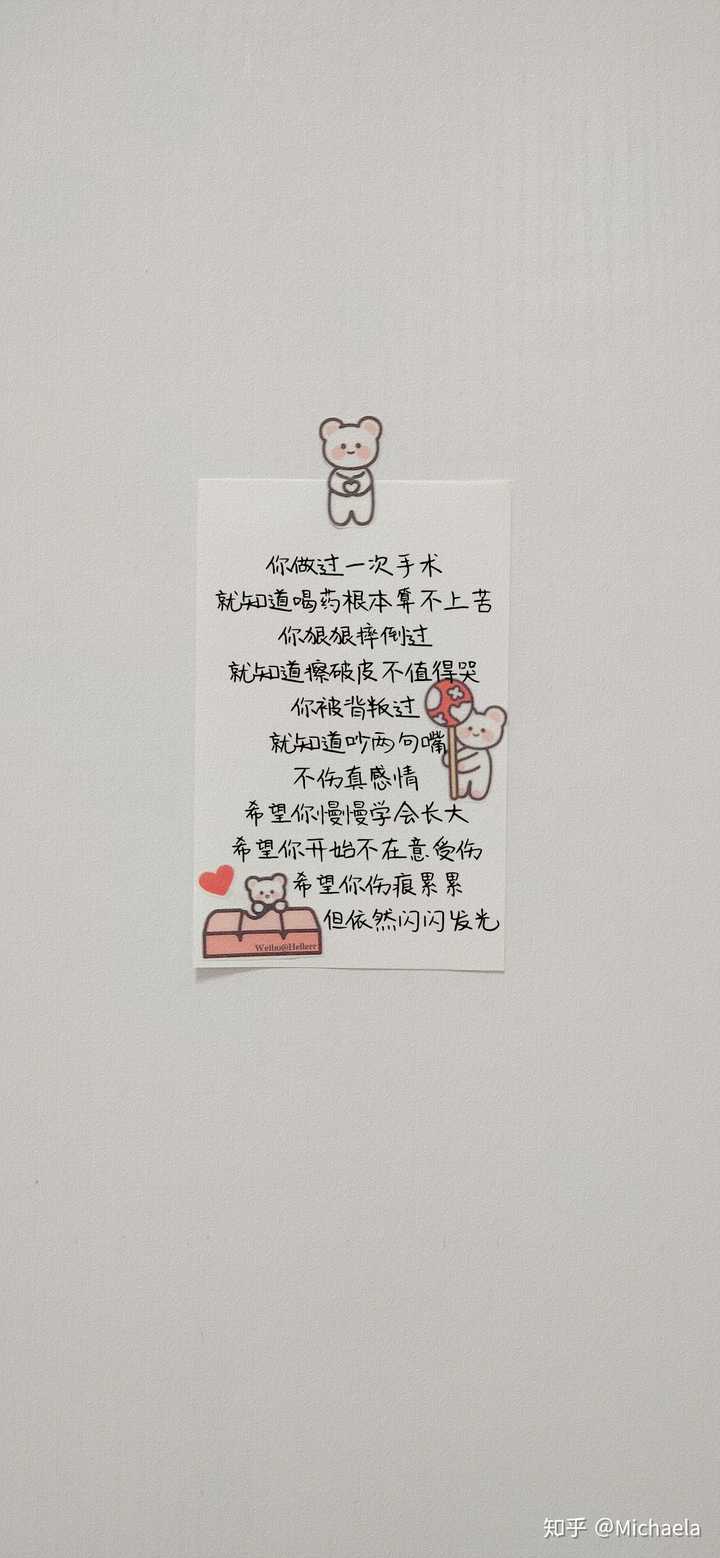 你做过一次手术
就知道喝药根本算不上苦
你狠狠摔倒过
就知道擦破皮不值得哭
你被背叛过
就知道吵两句嘴
不伤真感情
希望你慢慢学会长大
希望你开始不在意受伤
希望你伤痕累累
但依然闪闪发光
Weibo@Hellerr
知乎 @Michaela